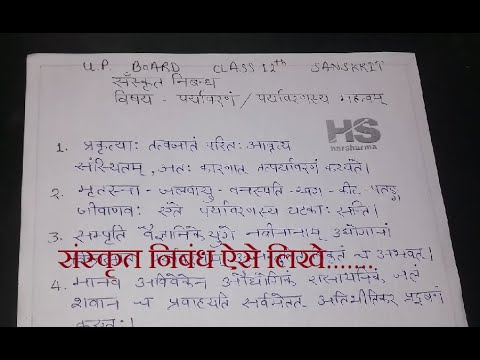 U.P. BOARD CLASS 12th SANSKRIT
संस्कृत निबन्ध
विषय - पर्यावरणं / पर्यावरणस्य महत्वम्
HS
hnrsharma
1. प्रकृत्याः तत्वजातं परितः आवृत्य
संस्थितम्, अतः कारणात् तत्पर्यावरणं कथ्यते।
2. मृतस्ना - जलवायु - वनस्पति - खग - कीट - पतङ्ग
जीवाणवः पर्यावरणस्य घटकाः सन्ति।
3. सम्प्रति वैज्ञानिके युगे नवीनानाम् उद्योगानां
च अभवत्।
संस्कृत निबंध ऐसे लिखे.......
4. मानव अविवेकेन औद्योगिकं रासायनिकं जलं
शवान च प्रवाहयति सर्वमेतत् अतिभौतिकं प्रदूषणं